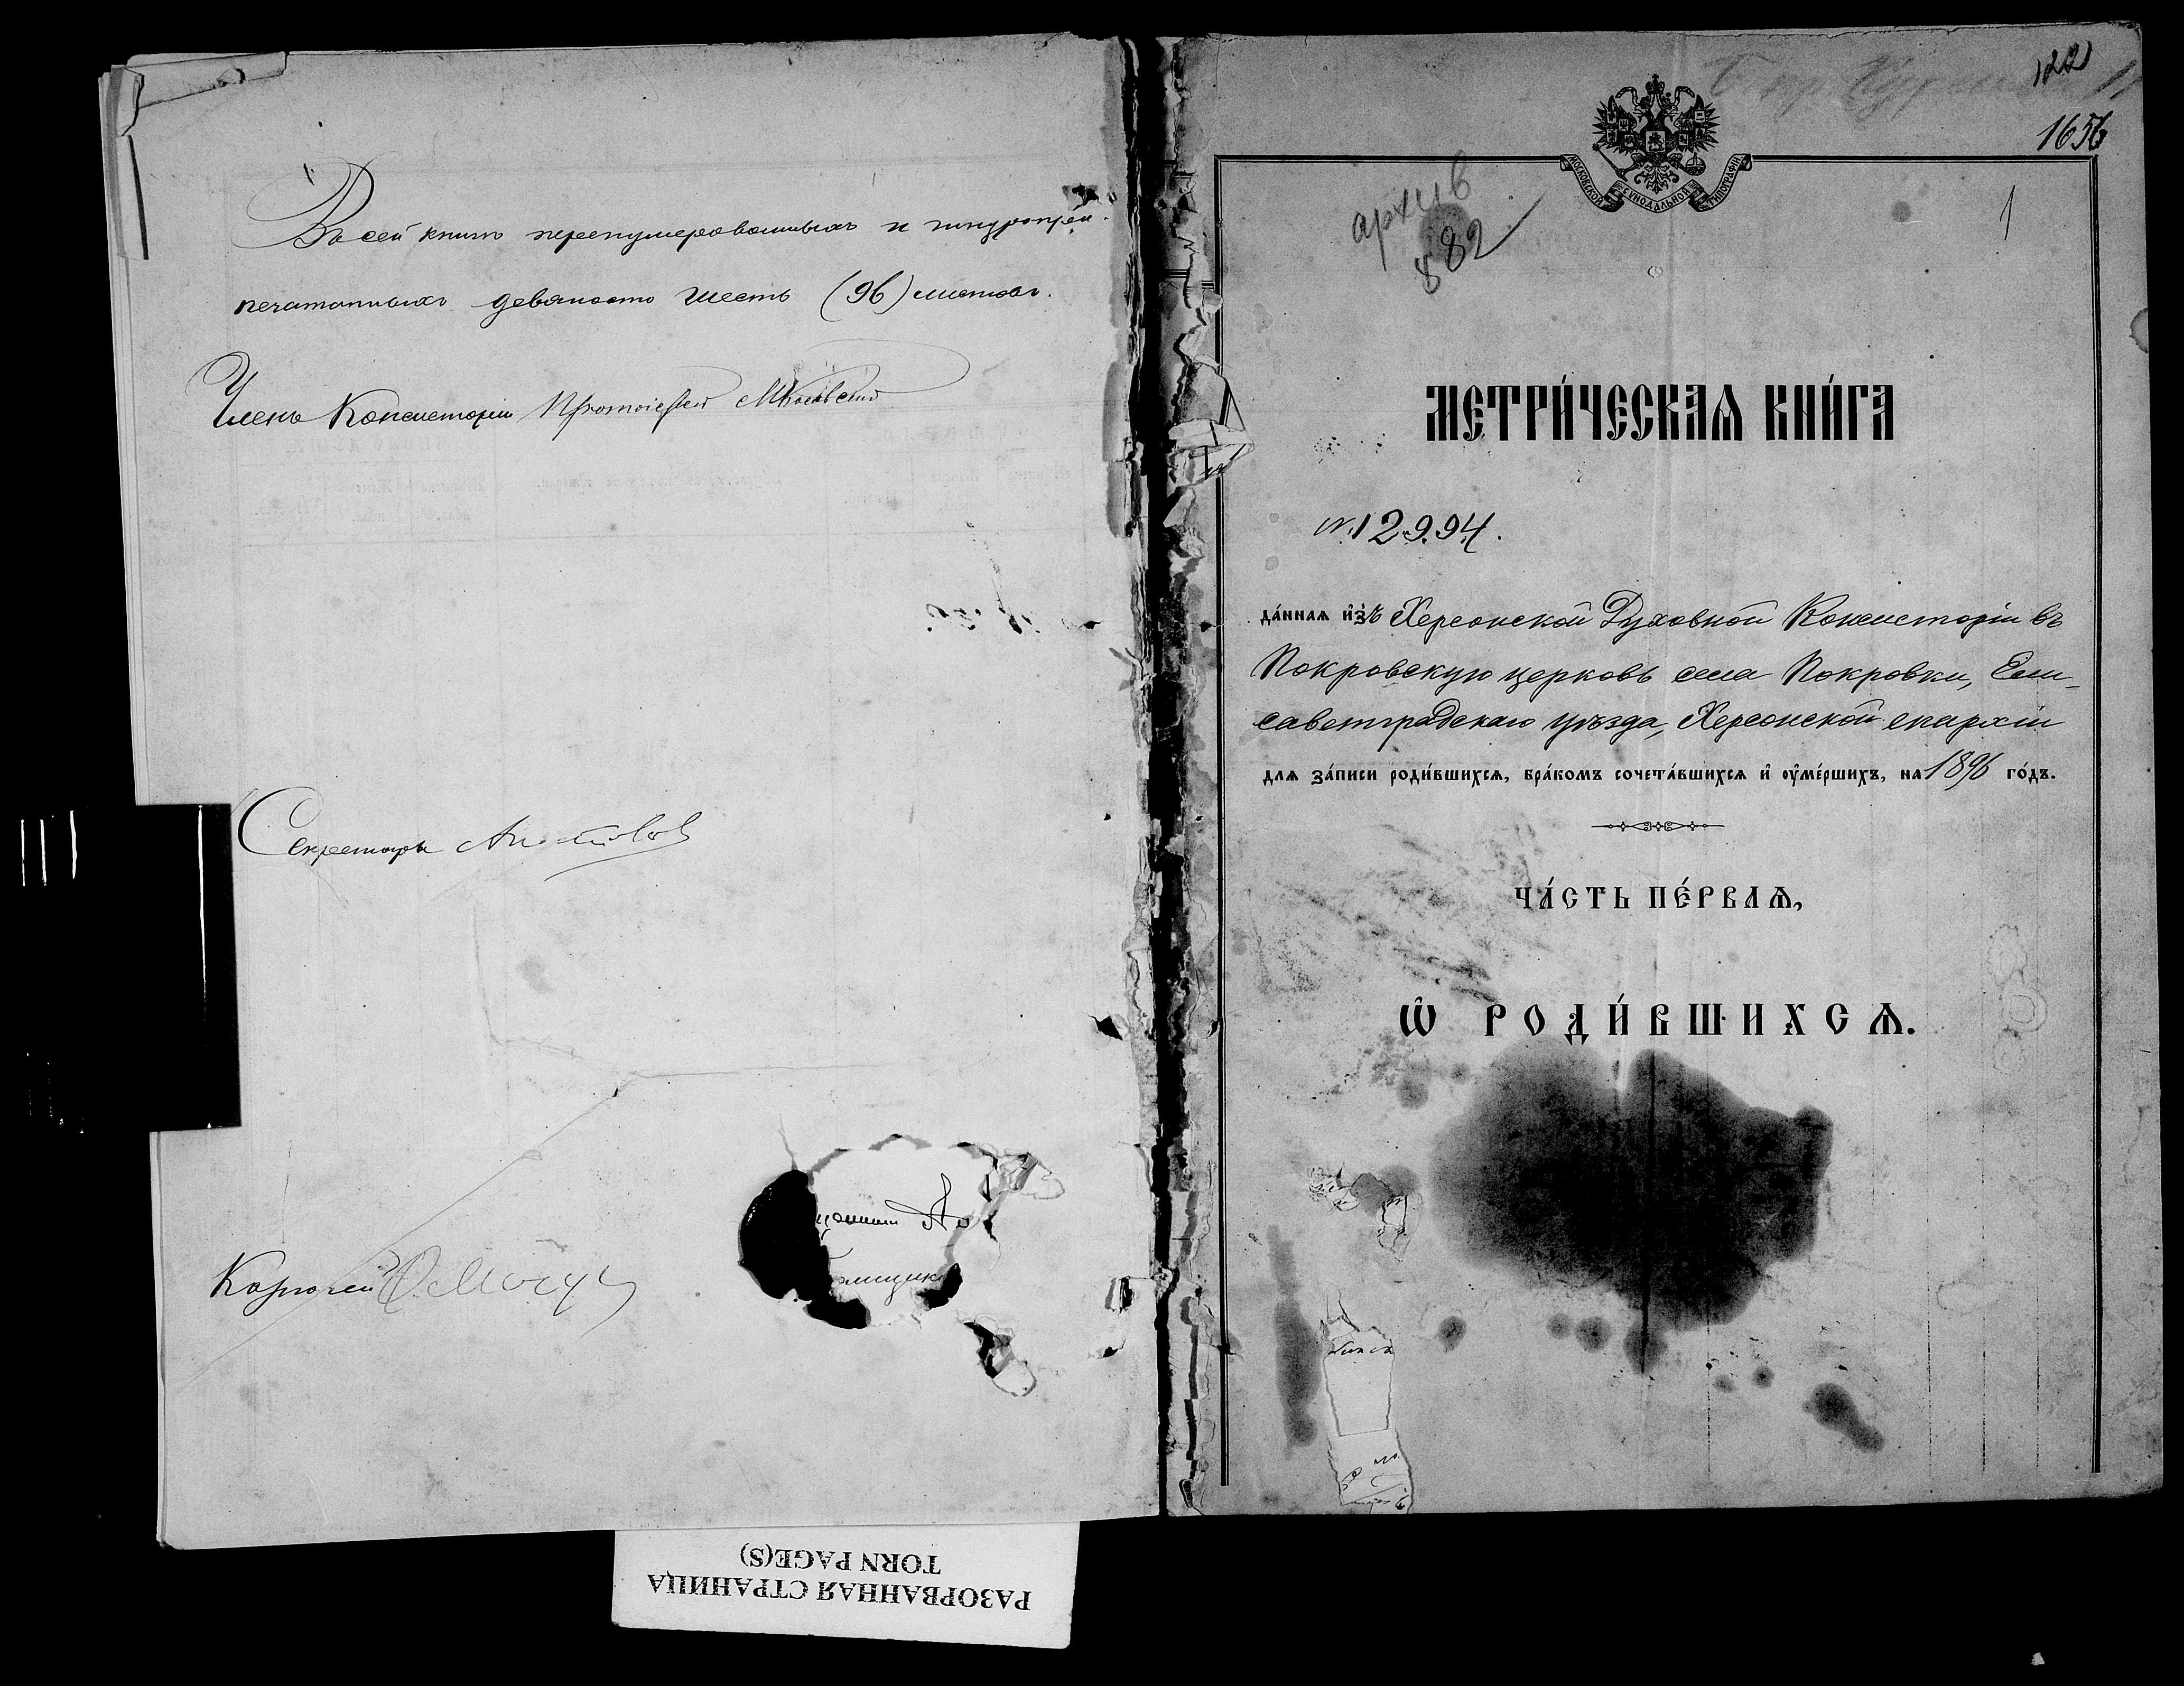 Въ сей книгѣ перенумерованныхъ и шнуропри-
печатанныхъ девяносто шесть (96) листовъ.
Членъ Консисторіи Протоіерей
Секретарь
РАЗОРВАННАЯ СТРАНИЦА
TORN PAGE(S)
122
1656
МОСКОВСКОЙ СѴНОДАЛЬНОЙ ТИПОГРАФІИ
1
архив
882
МЕТРИ́ЧЕСКАѦ КНИ́ГА
№ 12994.
да́ннаѧ и҆зъ Херсонской Духовной Консисторіи въ
Покровскую церковь села Покровки, Ели-
саветградскаго уѣзда, Херсонской епархіи
для за́писи роди́вшихсѧ, бра́комъ сочета́вшихсѧ и҆ ᲂу҆ме́ршихъ, на 1896 го́дъ.
ЧА́СТЬ ПЕ́РВАѦ,
Ѡ҆ РОДИ́ВШИХСѦ.